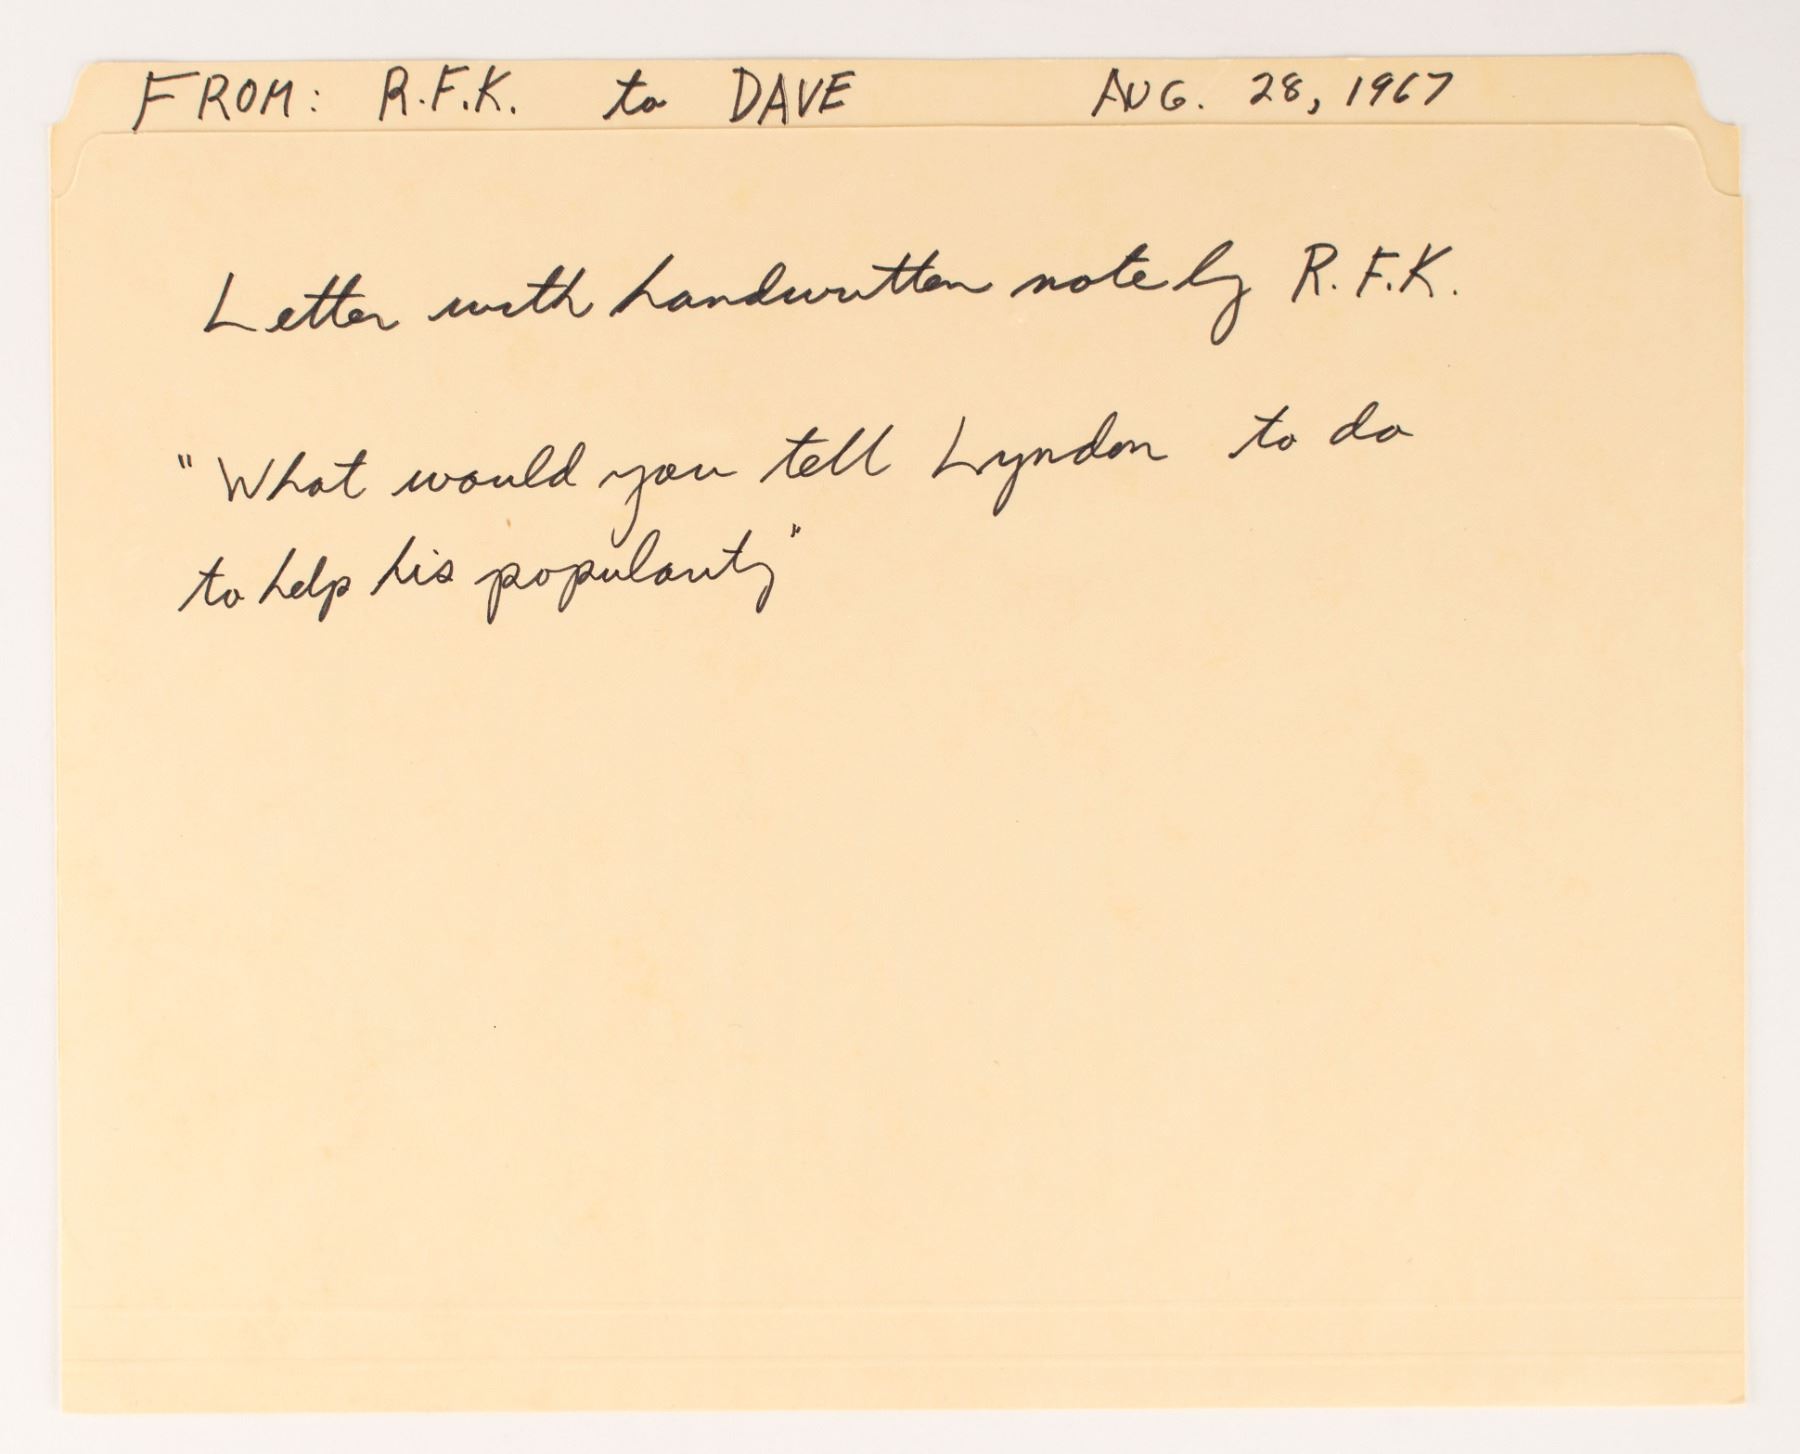 FROM: R.F.K. to DAVE AUG. 28, 1967
Letter with handwritten note by R.F.K.
"What would you tell Lyndon to do
to help his popularity"